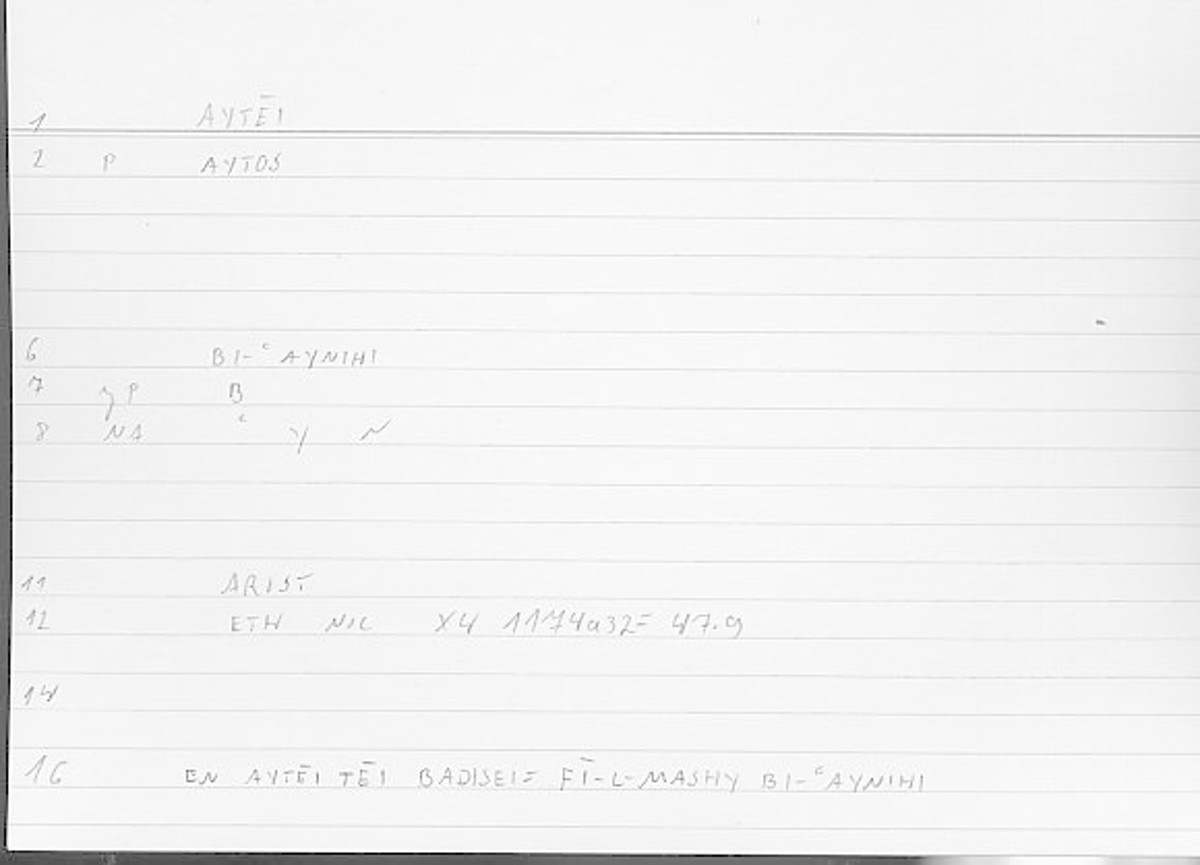 1 AYTĒI
2 P AYTOS
6 BI-ᶜAYNIHI
7 P B
8 NA ᶜ Y N
11 ARIST
12 ETH NIC X4 1174a32= 47.9
14
16 EN AYTĒI TĒI BADISEI= FĪ-L-MASHY BI-ᶜAYNIHI